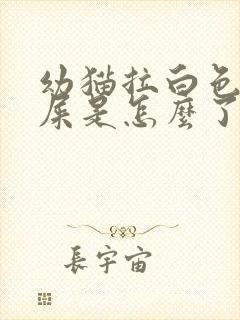 幼猫拉白色
屎是怎麼了
長宇宙